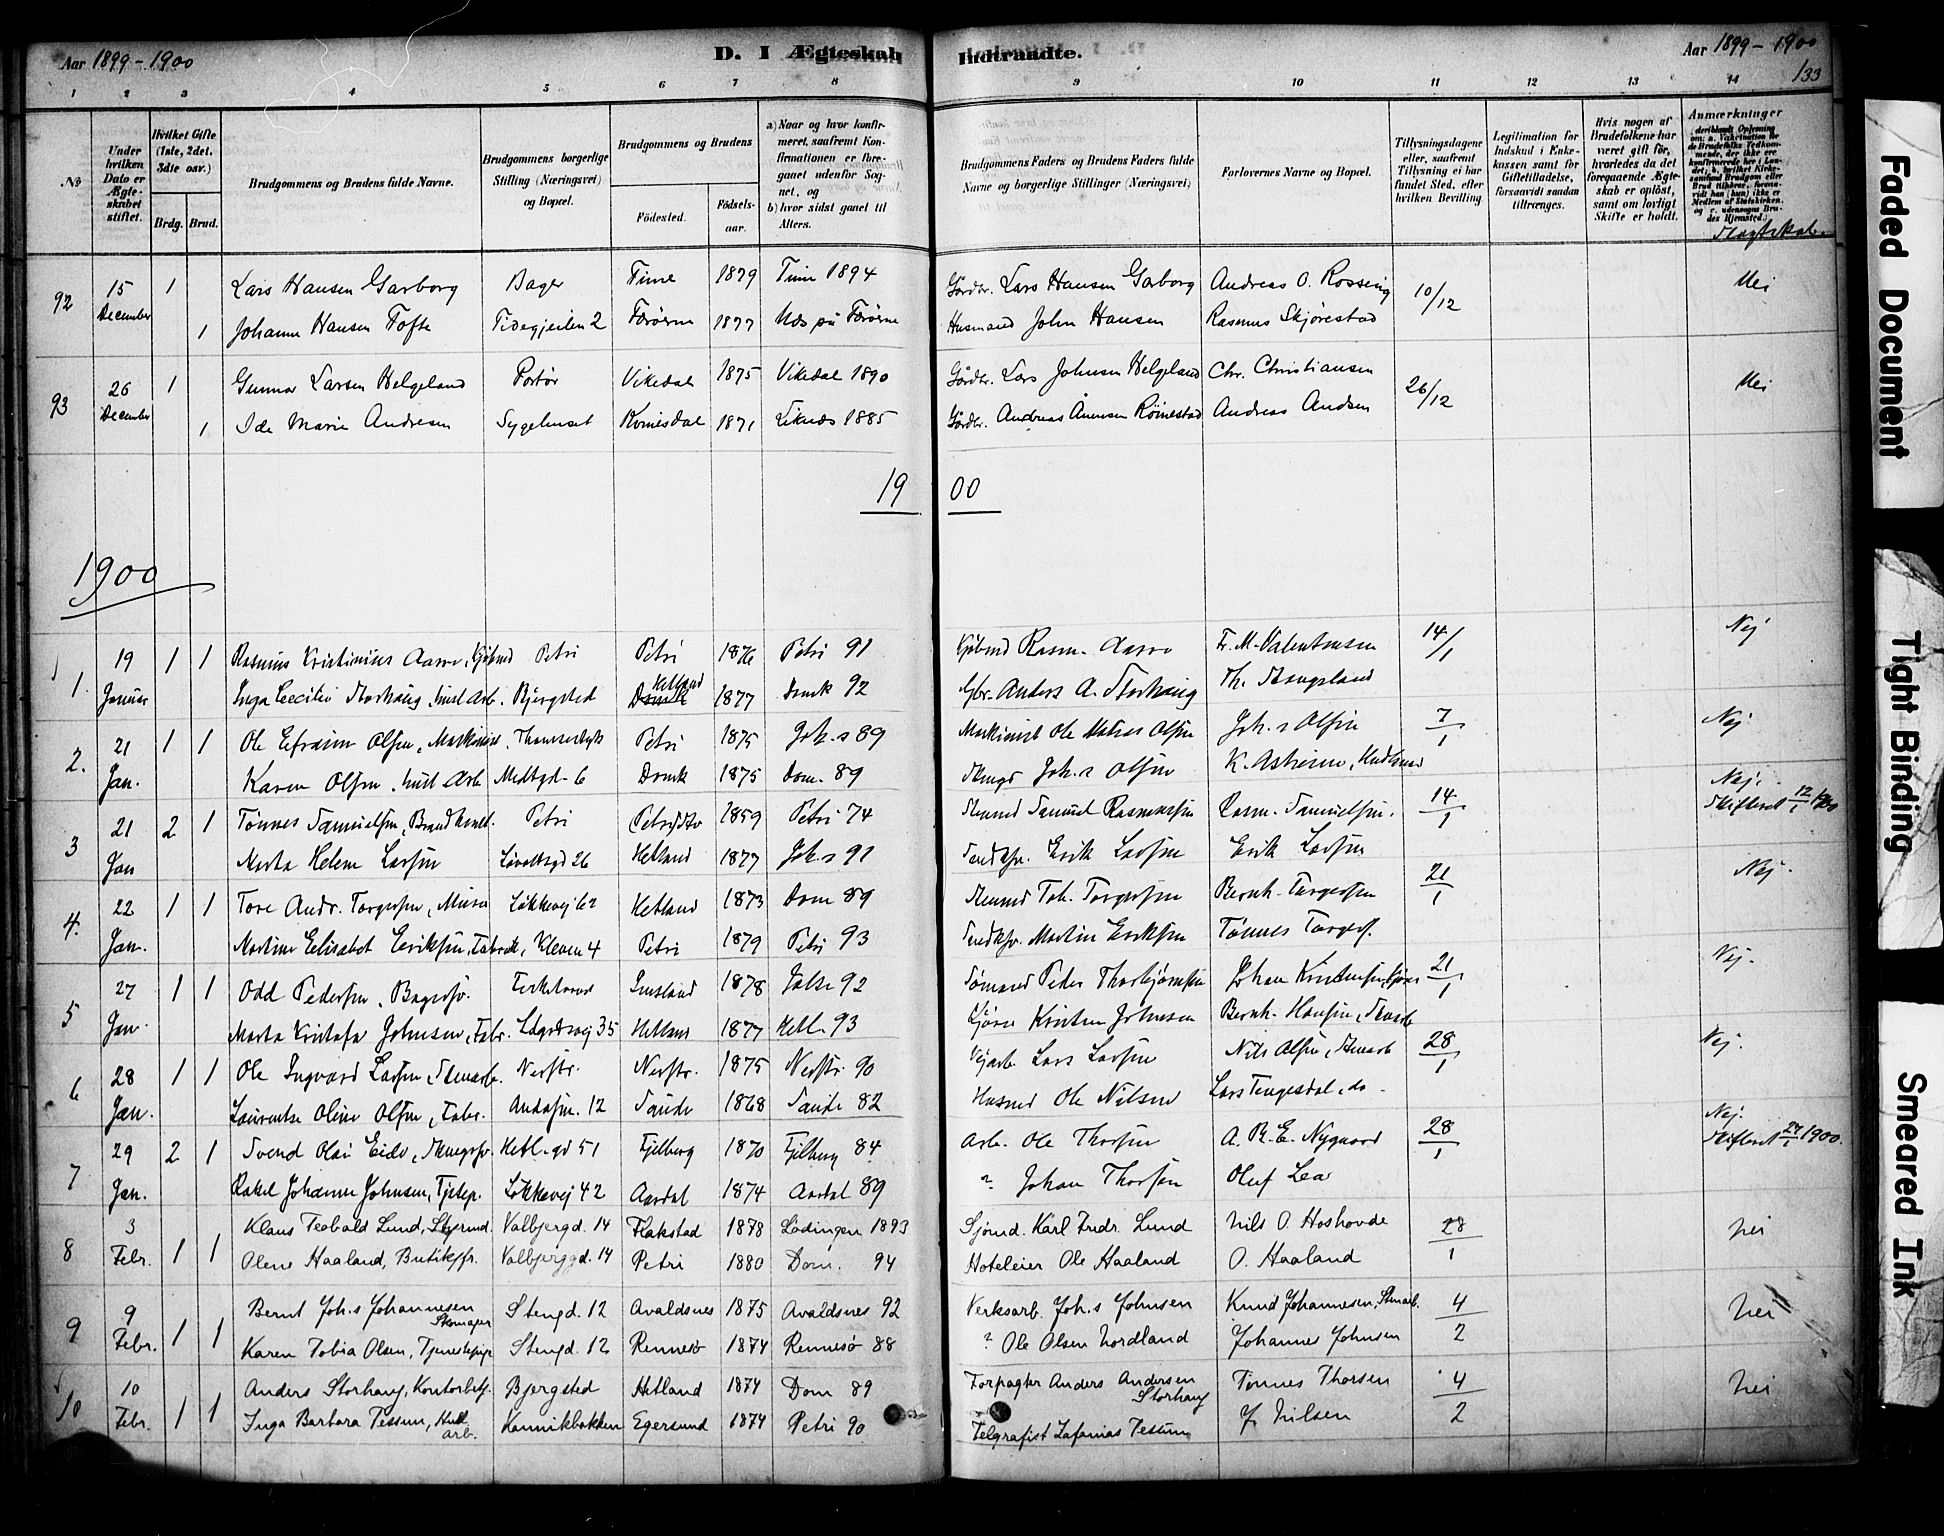 Aar 1899-1900
D. I Ægteskab
Indtraadte.
Aar 1899-1900
133
1 2 3 4 5 6 7 8 9 10 11 12 13 14
No
Under hvilken Dato er Ægteskabet stiftet.
Hvilket Gifte (1ste, 2det, 3dte osv.)
Brdg. Brud.
Brudgommens og Brudens fulde Navne.
Brudgommens borgerlige Stilling (Næringsvei) og Bopæl.
Brudgommens og Brudens
Födested.
Födselsaar.
a) Naar og hvor konfirmeret, saafremt Konfirmationen er foregaaet udenfor Sognet, og
b) hvor sidst gaaet til Alters.
Brudgommens Faders og Brudens Faders fulde Navne og borgerlige Stillinger (Næringsvei)
Forlovernes Navne og Bopæl.
Tillysningsdagene eller, saafremt Tillysning ei har fundet Sted, efter hvilken Bevilling.
Legitimation for Indskud i Enkekassen samt for Giftetilladelse, forsaavidt saadan tiltrænges.
Hvis nogen af Brudefolkene har været gift för, hvorledes da det foregaaende Ægteskab er oplöst, samt om lovligt Skifte er holdt.
Anmærkninger
92 15 December 1 Lars Hansen Garborg Bager Time 1879 Time 1894 Gårdbr. Lars Hansen Garborg Andreas O. Rosseing 10/12 Nei
1 Johanne Hansen Tofte Tidegjeilen 2 Færøerne 1877 Næs på Færøerne Husmand John Hansen Rasmus Skjørestad
93 26 December 1 Gunnar Larsen Helgeland Portør Vikedal 1875 Vikedal 1890 Gårdbr. Lars Johnsen Helgeland Chr. Christiansen 26/12 Nei
1 Ida Marie Andresen Sygehuset Kvinesdal 1871 Liknæs 1885 Gårdbr. Andreas Ånensen Röinestad Andreas Andsen
19 00
1900
1. 19 Januar 1 1 Rasmus Kristinius Aarre, Kjøbmd Petri Petri 1876 Petri 91 Kjöbmd Rasm. Aarre Fr. M. Valentinsen 14/1 Nej
Inga Cecilie Storhaug, hust Arb. Bjergsted Hetland 1877 Domk 92 Gbr. Anders A. Storhaug Th. Skogsland
2. 21 Jan. 1 1 Ole Efraim Olsen, Maskinist. Petri 1875 Joh.s 89 Maskinist Ole Olsen Joh.s Olsen 7/1 Nej
Karen Olsen, hust Arb. 6 Domk 1875 Dom. 89 Joh.s Olsen
3 21 Jan 2 1 Tönnes Samuelsen, Petri 1859 Petri 74 Samuel Rasmussen Rasm. Samuelsen. 14/1 Nej. Skifteret 12/1 1900
Marta Helene Larsen 26 Hetland 1877 Joh.s 91 Erik Larsen Erik Larsen
4. 22 Jan. 1 1 Tore Andr. Torgersen, Murer Lökkevej 62 Hetland 1873 Dom 89 Torgersen Bernh. Torgersen 21/1 Nej.
Martine Elisabet Eriksen, Fabrik, Kleven 4 Petri 1879 Petri 93 Martin Eriksen Tönnes Torgers.
5 27 Jan. 1 1 Odd Pedersen, Bagersv. Imsland 1878 Jelse 92 Sömand Peder Thorbjørnsen Johan Kristensen 21/1 Nej.
Marta Kristofa Johnsen, Fabr. 35 Hetland 1877 Hetl. 93 Kristen Johnsen Bernh. Hansen, Stenarb
6 28 Jan. 1 1 Ole Ingvard Larsen, Stenarb. Nerstr. Nerstr. 1875 Nerstr. 90 Vejarb. Lars Larsen Nils Olsen, Stenarb 28/1 Nej.
Laurentse Oline Olsen, Fabr. Andasm. 12 Saude 1868 Saude 82 Husmd Ole Nilsen Lars Tengesdal, do.
7 29 Jan. 2 1 Svend Olai Eide, Hetl.gd 51 Fjelberg 1870 Fjelberg 84 Arb. Ole Thorsen A. B. E. Nygaard 28/1 Nej. Skifteret 29/1 1900.
Rakel Johanne Johnsen, Tjstep. Lökkevej 42 Aardal 1874 Aardal 89 ? Johan Thorsen Oluf Lea
8 3 Febr. 1 1 Klaus Teobald Lund, Styrmd. Valbjergd. 14 Flakstad 1878 Lödingen 1893 Sjömd. Karl Fredr. Lund Nils O. Hoshovde 28/1 Nei
Olene Haaland, Butikfr. Valbjerggd. 14 Petri 1880 Dom. 94 Hoteleier Ole Haaland O. Haaland
9 9 Febr. 1 1 Bernt Joh.s Johannesen Skomager Stengd. 12 Avaldsnes 1875 Avaldsnes 92 Verksarb. Joh.s Johnsen Knud Johannesen, Stenarb. 4/2 Nei
Karen Tobia Olsen, Tjenestepige Stengd. 12 Rennesö 1874 Rennesö 88 ? Ole Olsen Nordland Johannes Johnsen
10 10 Febr. 1 1 Anders Storhaug, Kontorbetj. Bjergsted Hetland 1874 Dom 89 Forpagter Anders Andersen Storhaug Tönnes Thorsen 4/2 Nei
Inga Barbara Tessum, Hust. arb. Kannikbakken Egersund 1874 Petri 90 Telgrafist Zafanias Tessum J. Nilsen
Faded Document
Tight Binding
Smeared Ink